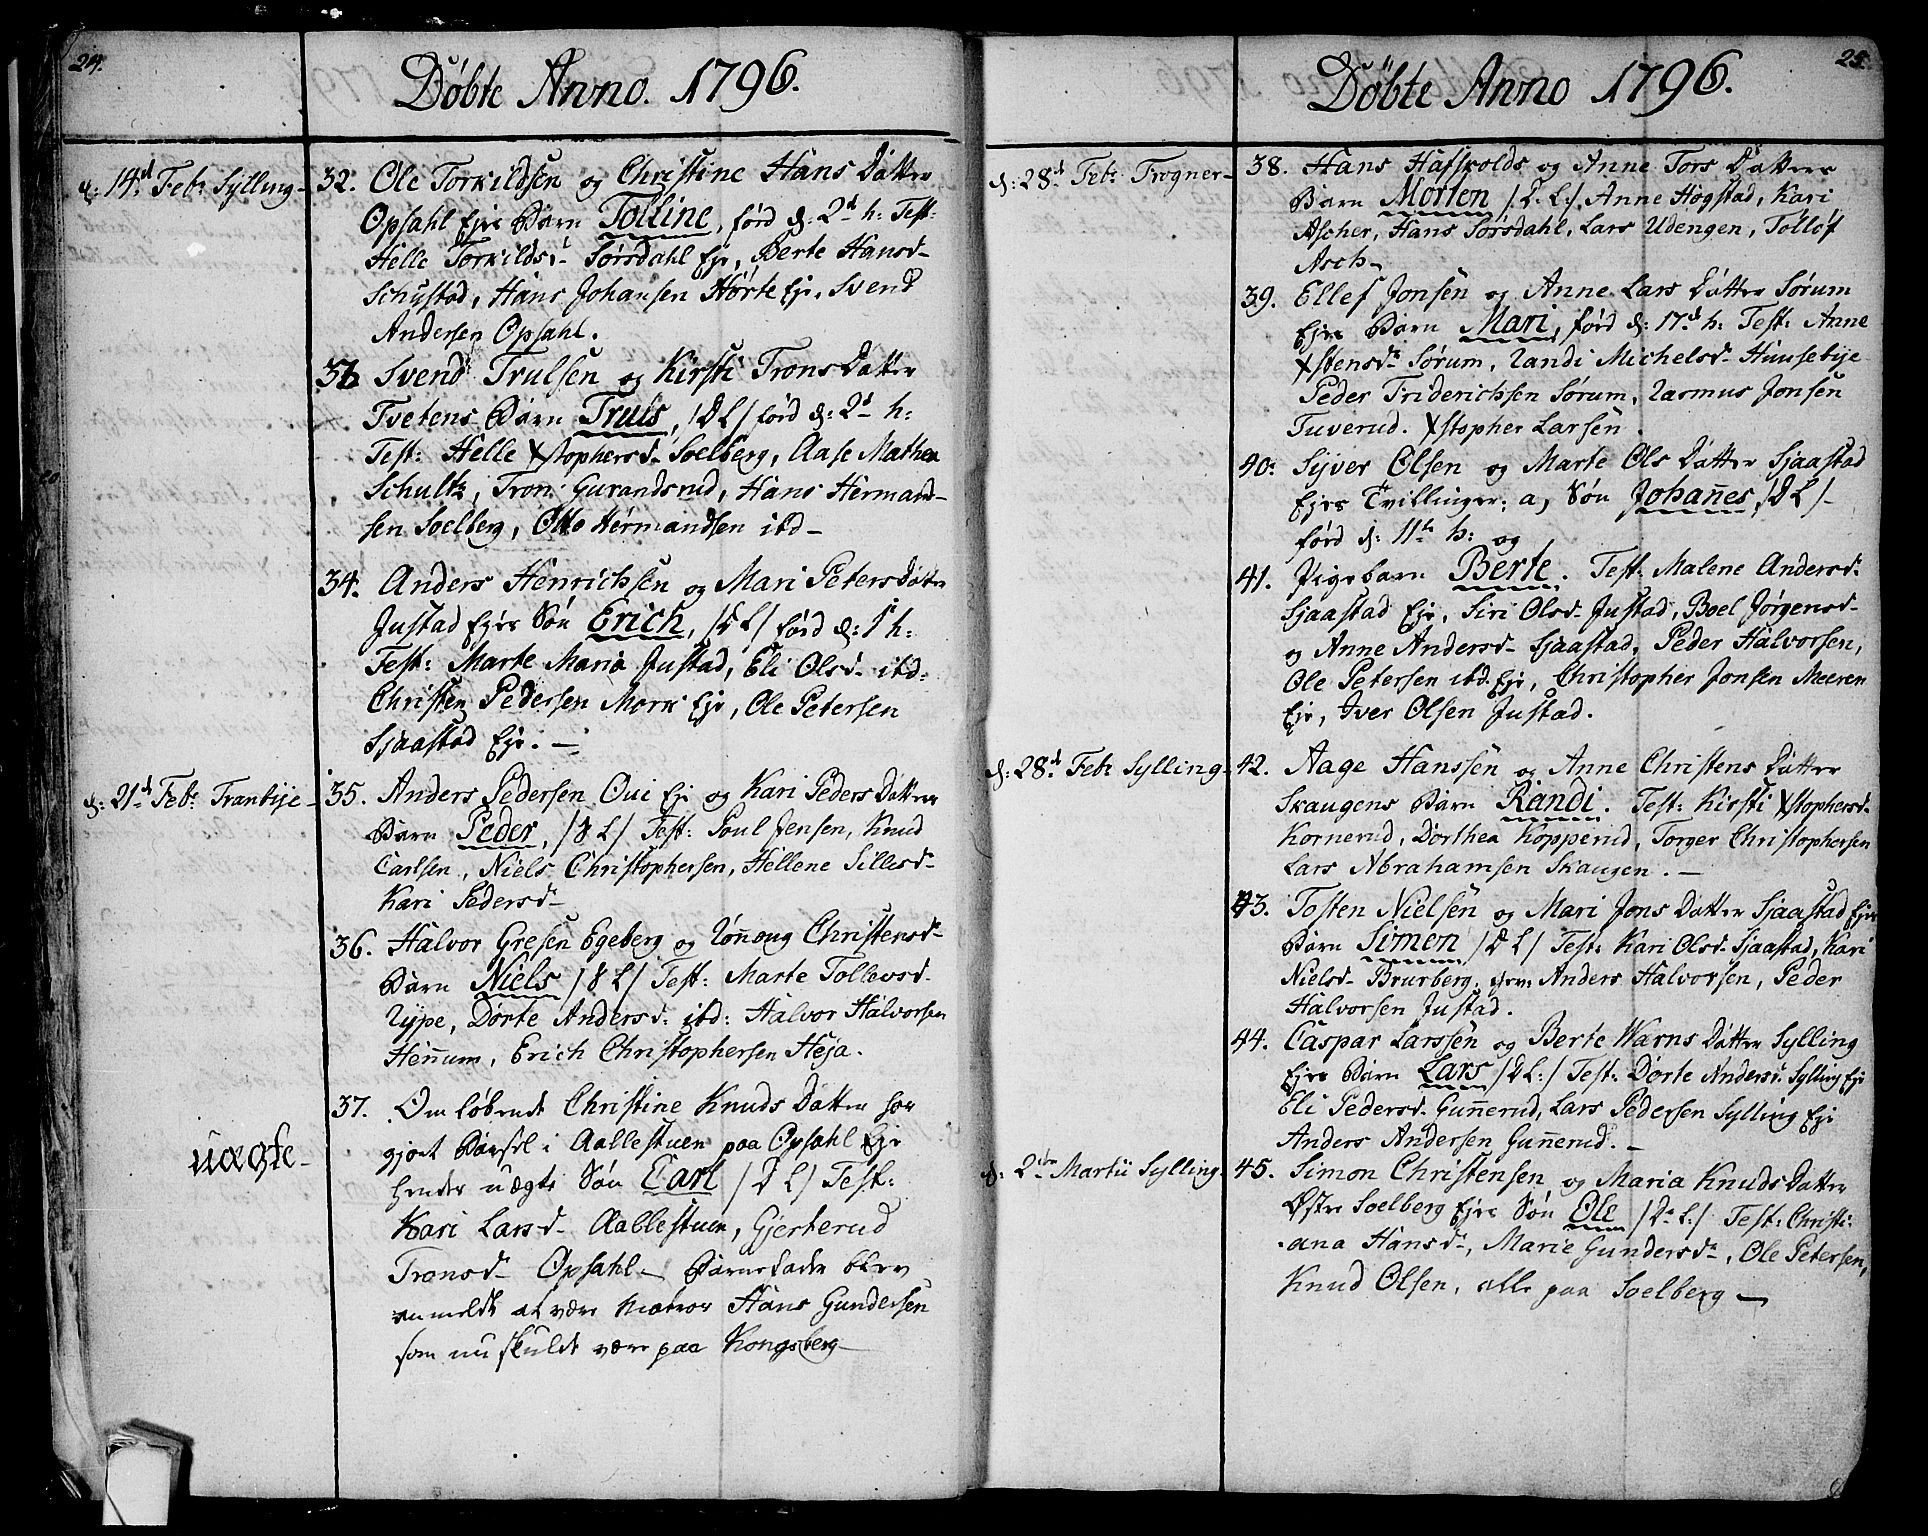 24.
Døbte Anno. 1796.
d: 14d Febr Sylling
32. Ole Torkildsen og Christine Hans Datter
Opsahl Ejes Barn Tolline, førd d: 2d h: Test:
Helle Torkildsd Sørsdahl Eje, Berte Hansd
Schystad, Hans Johansen Hørte Eje, Svend
Andersen Opsahl.
33 Svend Trulsen og Kirsti Trons Datter
Tvetens Barn Truls, /DL/ førd d: 2d h:
Test: Helle Xstophersd Soelberg, Aase Mathea
Schultz, Tron Gurandsrud, Hans Hermand-
sen Soelberg, Otto Hermandsen ibd
34. Anders Henrichsen og Mari Peters Datter
Justad Ejes Søn Erich, /DL/ førd d: 1 h:
Test: Marte Maria Justad, Eli Olsd ibd:
Christen Pedersen Mork Eje, Ole Petersen
Sjaastad Eje.
d: 21d Febr Tranbye
35. Anders Pedersen Oui Ej og Kari Peders Datter
Barn Peder, /8 L/ Test: Poul Jensen, Knud
Carlsen, Niels Christophersen, Hellene Sillesd
Kari Pedersd
36. Halvor Gresen Egeberg og Rønnoug Christensd
Barn Niels /8 L/ Test: Marte Tollevsd
Rype, Dorte Andersd ibd: Halvor Halvorsen
Hennum, Erich Christophersen Heja.
37. Om løbende Christine Knuds Datter har
gjort Barsel i Aallestuen paa Opsahl Eje
uægte
hendes uægte Søn Carl /DL/ Test:
Kari Larsd Aallestuen, Gjerterud
Tronsd Opsahl Barnefader blev
anmeldt at være Matros Hans Gundersen
som nu skulde være paa Kongsberg
25.
Døbte Anno 1796.
d: 28d Febr Frogner
38. Hans Hafsvolds og Anne Tors Datters
Barn Morten /D.L:/. Anne Høgstad, Kari
Ascher, Hans Sørsdahl, Lars Udengen, Tolløf
Asch
39. Ellef Jonsen og Anne Lars Datter Sørum
Ejes Barn Mari, førd d: 17d h: Test: Anne
Xstensd Sørum, Randi Michelsd Huusebye
Peder Friderichsen Sørum, Rasmus Jonsen
Tuverud. Xstopher Larsen
40: Syver Olsen og Marte Ols Datter Sjaastad
Ejes Tvillinger; a, Søn Johannes, /DL/
førd d: 11te h: og
41. Pigebarn Berte. Test: Malene Andersd
Sjaastad Eje, Siri Olsd Justad, Boel Jørgensd
og Anne Andersd Sjaastad, Peder Halvorsen,
Ole Petersen ibd Eje, Christopher Jonsen Meeren
Eje, Iver Olsen Justad.
d: 28d Febr Sylling
42. Aage Hanssen og Anne Christens Datter
Skaugens Barn Randi. Test: Kirsti Xstophersd
Kornerud, Dorthea Kopperud, Torger Christophersen
Lars Abrahamsen Skaugen.
43. Tosten Nielsen og Mari Jons Datter Sjaastad Ejes
Barn Simen /DL/ Test: Kari Olsd Sjaastad, Kari
Nielsd Brurberg, Anders Halvorsen, Peder
Halvorsen Justad.
44. Caspar Larssen og Berte Warns Datter Sylling
Ejes Barn Lars /DL:/ Test: Dorte Andersd Sylling Eje
Eli Pedersd Gunnerud, Lars Pedersen Sylling Eje
Anders Andersen Gunnerud.
d: 2den Martii Sylling
45. Simon Christensen og Maria Knuds Datter
Østre Soelberg Ejes Søn Ole /D L:/ Test: Christi-
ana Hansdr, Marie Gundersdr, Ole Petersen,
Knud Olsen, alle paa Soelberg